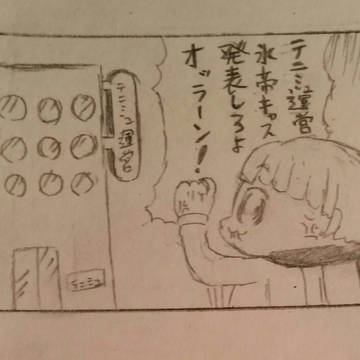 テニミュ運営
氷帝キャス
発表しろよ
オッラーン!
テニミュ運営
テニミュ